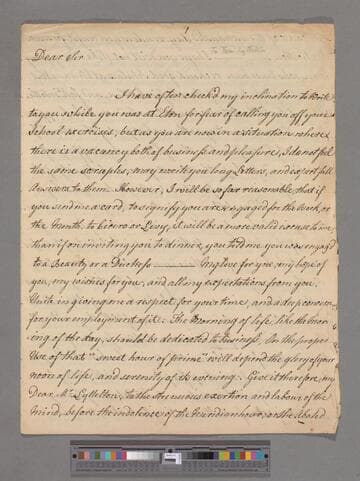 1
Dear Sir
I have often check'd my inclination to Write
to you while you was at Eton for fear of calling you off your
School Exercises, but as you are now in a situation where
there is a vacancy both of business and pleasure, I do not feel
the same scruples, may write you long Letters, and expect full
Answers to them. However, I will be so far reasonable, that if
you send me a card, to signify you are engaged for the Week, or
the Month, to Cicero or Livy, I will be a more valid excuse to me
than if on inviting you to dinner, you told me you was engaged
to a Beauty or a Dutchess ——— My love for you, my hope of
you, my wishes for you, and all my expectations from you,
Unite in giving me a respect for your time, and a deep concern
for your employment of it. The Morning of life, like the Morn
ing of the day, should be dedicated to Business. On the proper
Use of that "sweet hour of prime" will depend the glory of your
noon of life, and serenity of the evening. Give it therefore, my
Dear Mr. Lyttelton, to the strenuous exertion and labour of the
Mind, before the indolence of the Meridian hour, or the